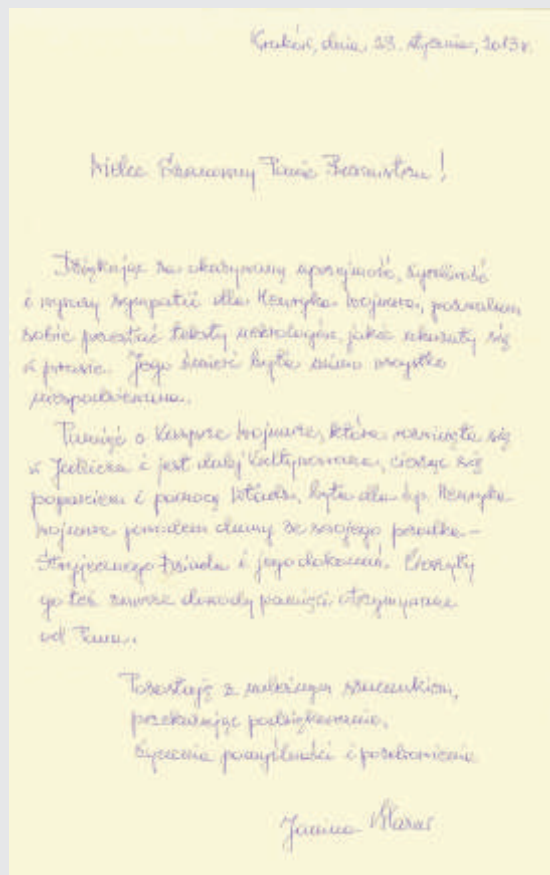 Kraków, dnia 23. stycznia, 2013r.
Wielce Szanowny Panie Burmistrzu!
Dziękując za okazywaną uprzejmość, życzliwość
i wyrazy sympatii dla Henryka Wojnara, pozwalam
sobie przesłać teksty nekrologów, jakie ukazały się
w prasie. Jego śmierć była mimo wszystko
niespodziewana.
Pamięć o Kasprze Wojnarze, która rozwinęła się
w i jest dalej kultywowana, ciesząc się
poparciem i pomocą Władz, była dla śp. Henryka
Wojnara powodem dumy ze swojego przodka –
Stryjecznego Dziada i jego dokonań. Cieszyły
go też zawsze dowody pamięci otrzymywane
od Pana.
Pozostaję z należnym szacunkiem,
przekazując podziękowanie,
życzenia pomyślności i pozdrowienia
Janina